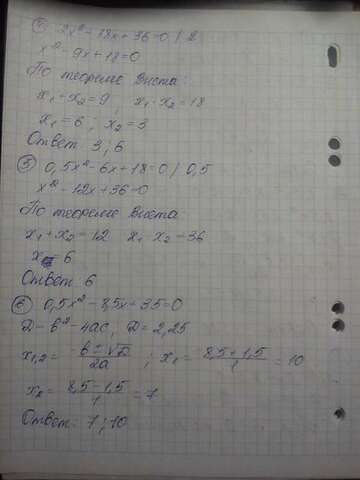 ③ 2x²-18x+36=0 / 2
x²-9x+18=0
По теореме Виета:
x₁-x₂=9, x₁·x₂=18
x₁=6; x₂=3
Ответ 3; 6
⑤ 0,5x²-6x+18=0 / 0,5
x²-12x+36=0
По теореме Виета:
x₁+x₂=12 x₁·x₂=36
x=6
Ответ 6
⑥ 0,5x²-8,5x+35=0
D=b²-4ac; D=2,25
x₁,₂= -b±√D/2a ; x₁= 8,5+1,5/1 =10
x₂= 8,5-1,5/1 =7
Ответ: 7; 10